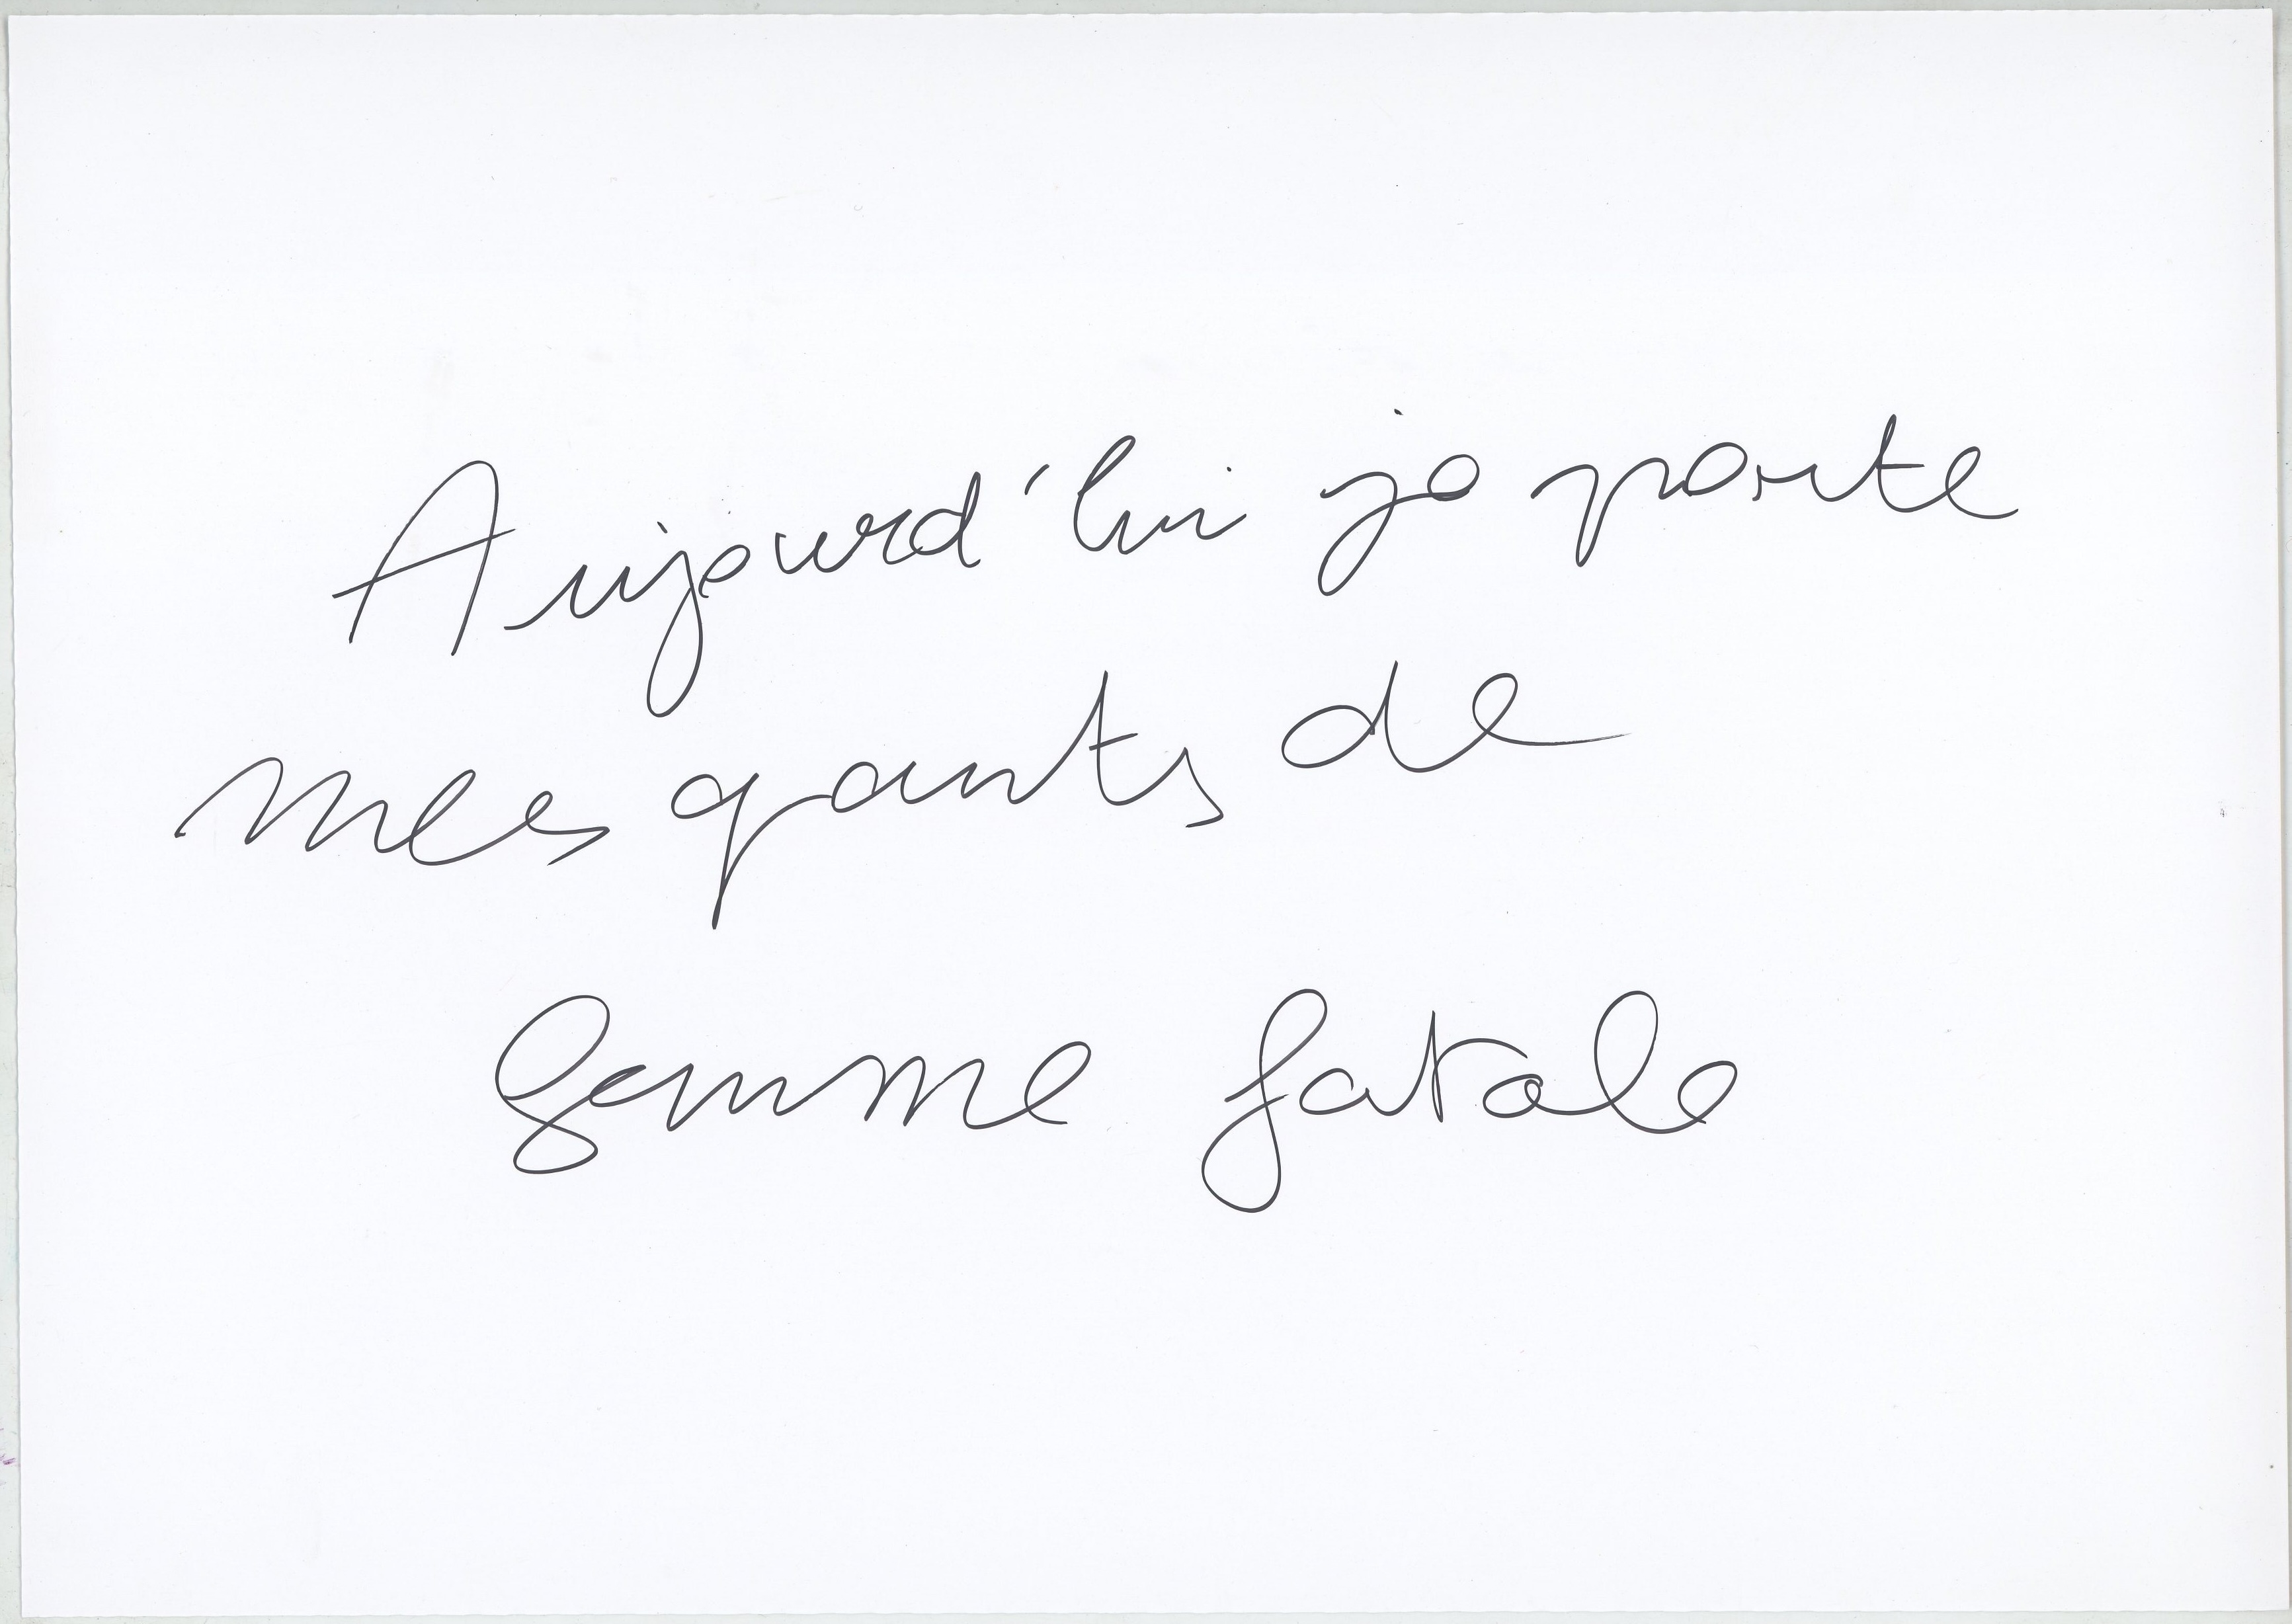 Aujourd'hui je porte
mes gants de
femme fatale